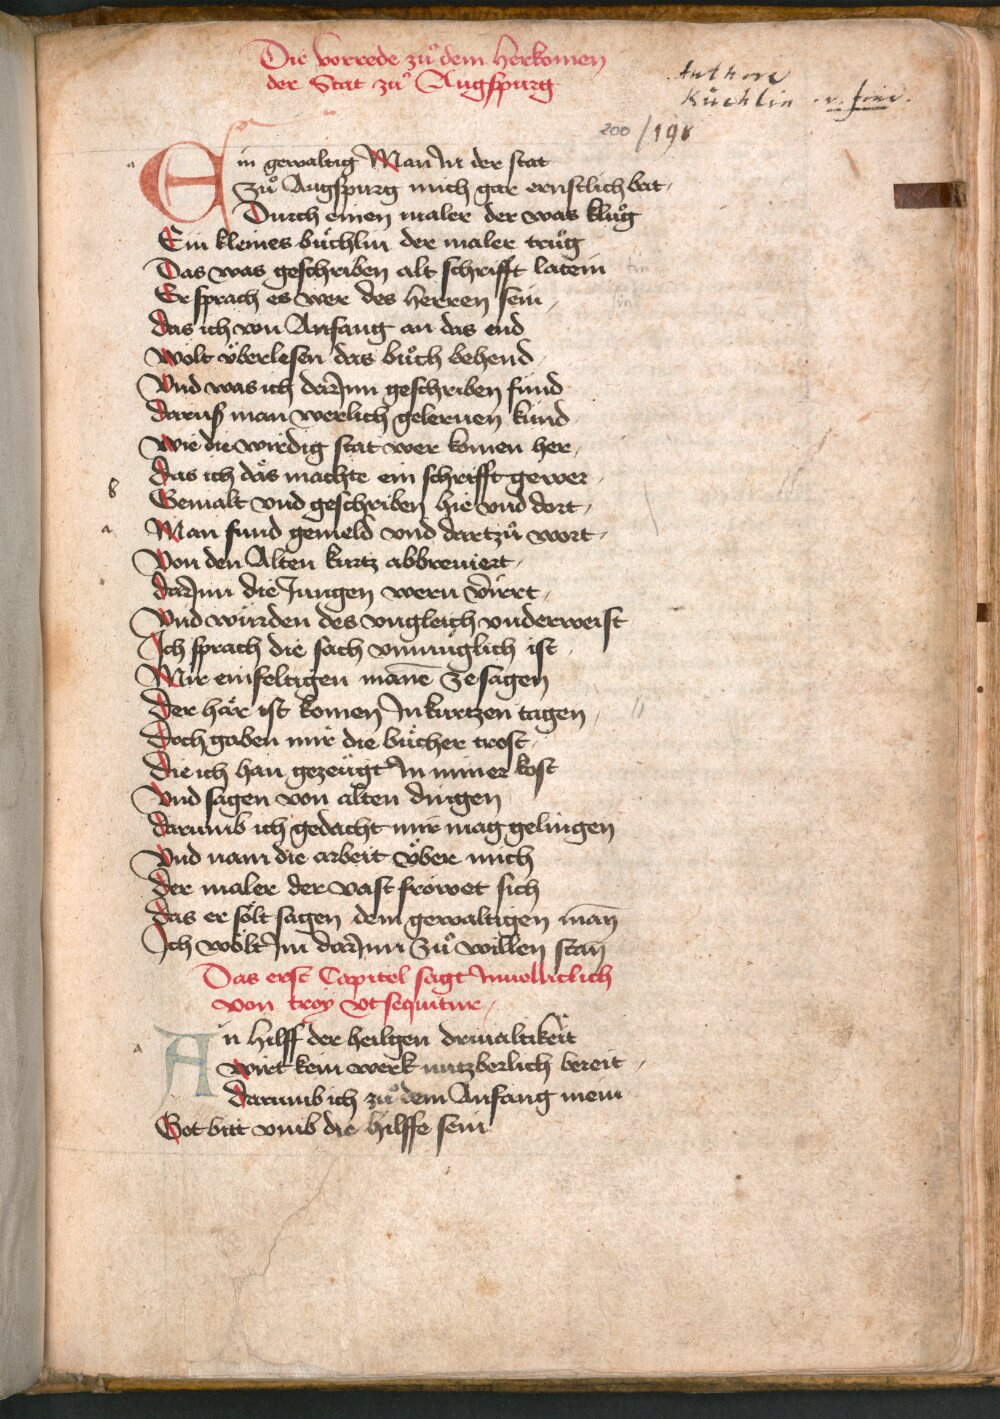 Die vorrede zuͦ dem herkomen
der Stat zuͦ Augspurg
Authore
Küchlin v. fine.
200 /198
Ein gewaltig Man In der stat
Zuͦ Augspurg mich gar ernstlich bat
Durch einen maler der was kluͦg
Ein kleines büchlin der maler truͦg
Das was geschriben alt schrifft latein
Er sprach es wer des herren sein
das ich von Anfang an das end
wölt überlesen das buͦch behend
Vnd was ich darInn geschriben fund
daruß man werlich gelernen kund
wie die wirdig stat wer komen her
das ich das machte ein schrifft gewer
Gemalt vnd geschriben hie vnd dort
Man fund gemeld vnd dartzuͦ wort
Von den Alten kurtz abbreuiert
darInn die Jungen wern verirret
Vnd würden des vngleich vnderweist
Ich sprach die sach vnmüglich ist
Mir einfeltigen manē ze sagen
Der här ist komen In kurtzen tagen
Doch gaben mir die bücher trost
die ich han gezeügt In miner kost
Vnd sagen von alten dingen
darumb ich gedacht mir mag gelingen
Vnd nam die arbeit über mich
der maler der vast fröwet sich
das er sölt sagen dem gewaltigen man
Ich wölt Im darInn zuͦ willen stan
Das erst Capitel sagt
von troy vt sequitur
An hilff der heilgen driualtikeit
wirt kein werk nutzberlich bereit
darumb ich zuͦ dem Anfang mein
Got bitt vmb die hilffe sein